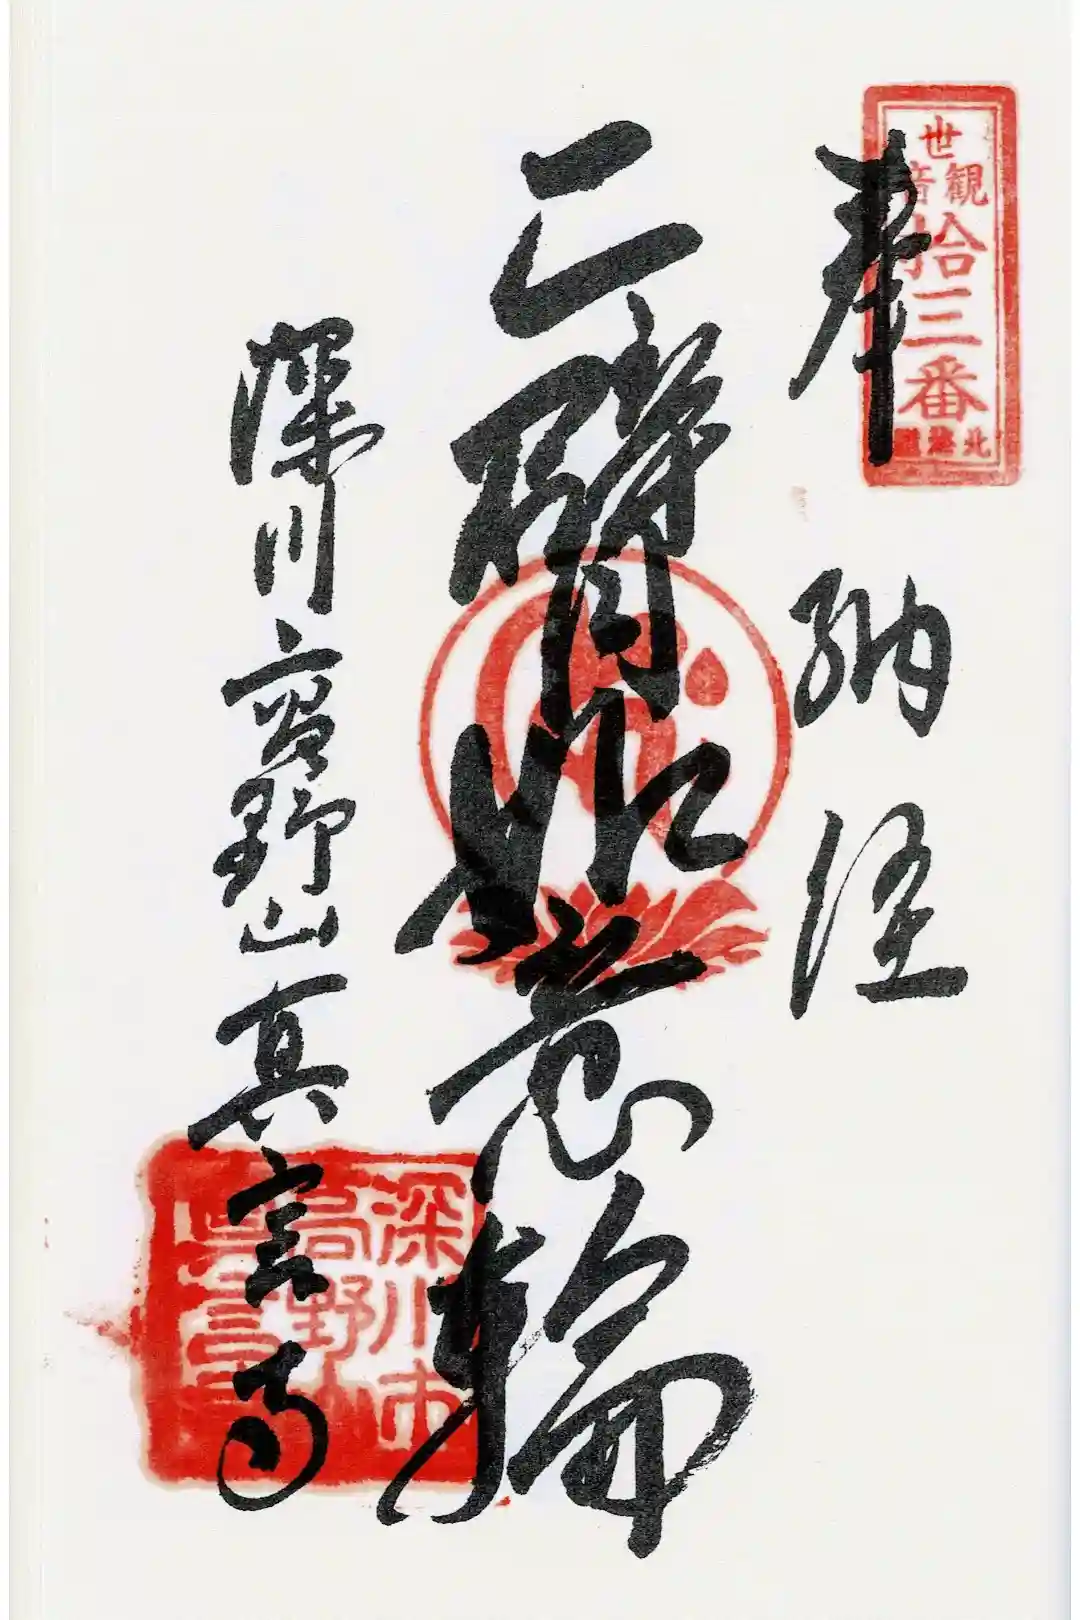 世
観音
拾三番
北海道
奉納経
二臂如意輪
深川高野山真言寺
深川市
高野山
真言寺